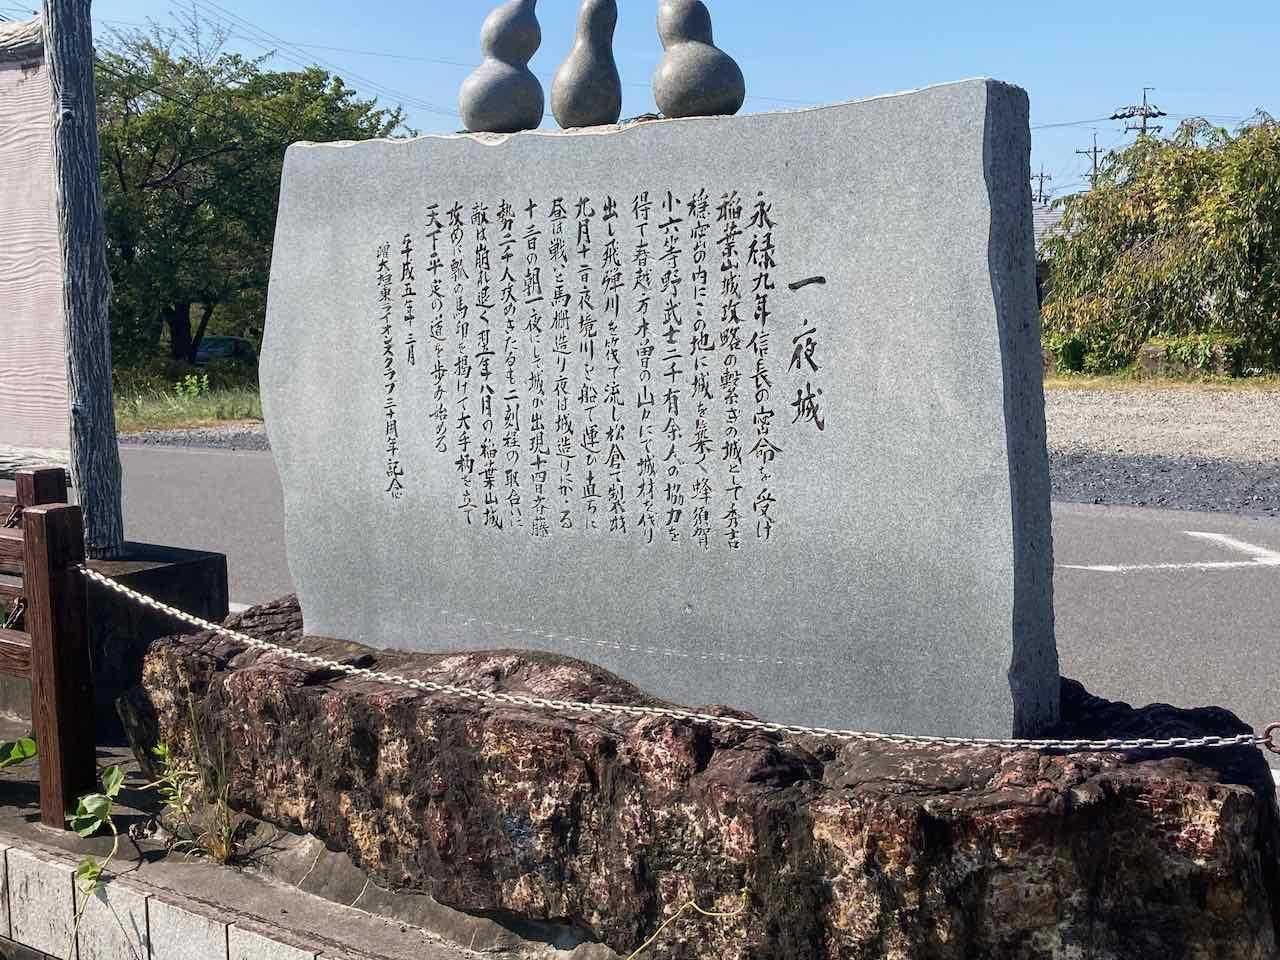 一夜城
永禄九年信長の密命を受け
稲葉山城攻略の繋ぎの城として秀吉
隠密の内にこの地に城を築く蜂須賀
小六等野武士二千有余人の協力を
得て春越一万木曽の山々にて城材を伐り
出し飛騨川を筏で流し松倉で製材
九月十二日夜境川を船で運び直ちに
昼は戦いと馬柵造り夜は城造りにかゝる
十三日の朝一夜にして城が出現十四日斉藤
勢二千人攻めきたるも二刻程の取合いに
敵は崩れ退く翌年八月の稲葉山城
攻めに瓢の馬印を掲げて大手柄を立て
天下平定の道を歩み始める
平成五年三月
贈大垣東ライオンズクラブ二十周年記念